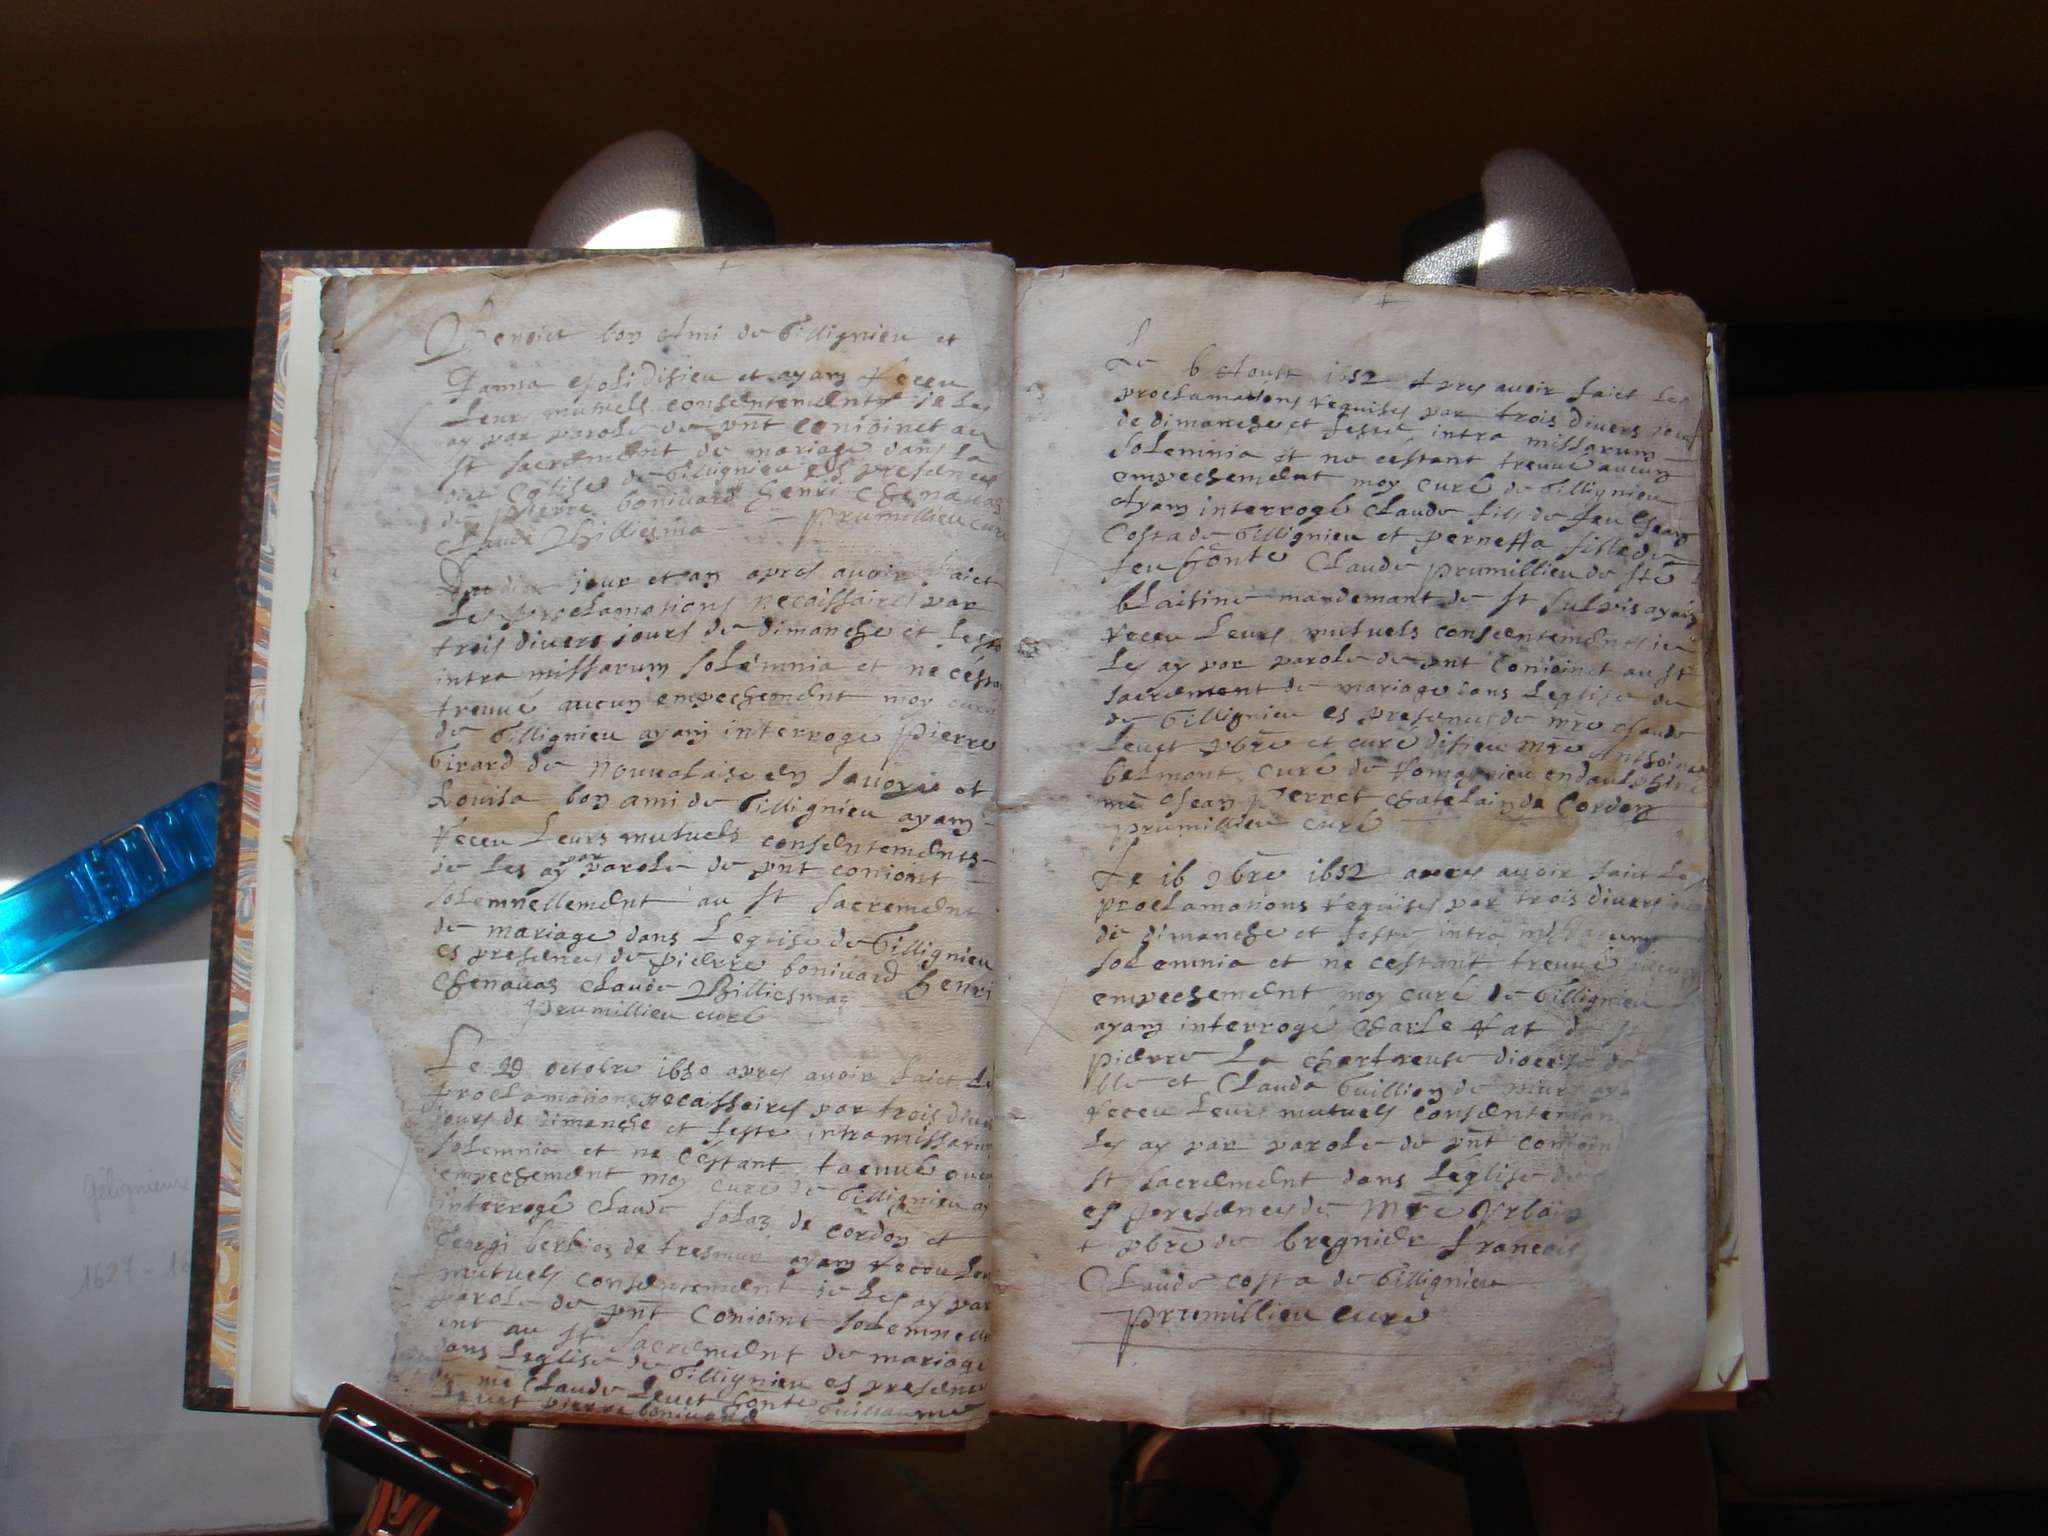 Benoict bon Ami de Gillignieu et
Janna Joli disieu et ayam Receu
Leurs mutuels consentements ie Les
ay par parole de pnt conioinct au
st sacrement de mariage dans La
dict eglise de Gillignieu es presences
de pierre boniuard henri Chenauaz
Claude Billiesma prumillieu cure
jour et an apres auoir faict
Les proclamations necaissaires par
trois divers jours de dimanche et feste
intra missarum solemnia et ne cesta
treuué aucun empechement moy cure
de Gillignieu ayam interroge pierre
Girard de nouualaise en sauoye et
Louisa bon ami de Gillignieu ayam
receu Leurs mutuels consentements
ie Les ay par parole de pnt conioint
solemnellement au st sacrement
de mariage dans Leglise de Gillignieu
es presences de pierre boniuard henri
Chenauaz Claude Billiesmaz
prumillieu curé
Le 29 octobre 1650 apres auoir faict Le
proclamations necaissaires par trois diuer
jours de dimanche et feste intra missarum
solemnia et ne cestant treuué aucu
empechement moy curé de Gillignieu ay
interrogé Claude Solaz de cordon et
Georgi berlioz de tresmur ayam receu Leu
mutuels consentement ie Les ay par
parole de pnt conioint solemnelle
ent au st sacrement de mariage
dans Leglise de Gillignieu es presence
de me Claude Leuet honte Guillaume
Leuet pierre boniuard
Le 6 Aoust 1652 Apres auoir faict Les
proclamations requises par trois divers jour
de dimanche et feste intra missarum
solemnia et ne cestant treuué aucun
empechement moy curé de Gillignieu
Ayam interrogé Claude fils de feu Jean
Costa de Gillignieu et pernetta fille de
feu honte Claude prumillieu de ste
blaisine mandemant de st sulpis ayam
receu Leurs mutuels consentements ie
Les ay par parole de pnt conioinct au st
sacrement de mariage dans Leglise de
de Gillignieu es presences de mre Claude
Leuet pbre et curé disieu mre Anthoine
belmont curé de romagnieu en daulphine
me Jean perret chatelain de Cordon
prumillieu curé
Le 16 9bre 1652 apres auoir faict Les
proclamations requises par trois divers iou
de dimanche et feste intra missarum
solemnia et ne cestant treuué aucun
empechement moy curé de Gillignieu
ayam interrogé Charle rat de st
pierre La chartreuse diocese de
ble et Clauda Guillion de murs aya
receu Leurs mutuels consenteman
Les ay par parole de pnt conioin
st sacrement dans Leglise de
es presences de Mre Urbain
t pbre de bregnier francois
Claude costa de Gillignieu
prumillieu cure
Gélignieux
1627 - 16